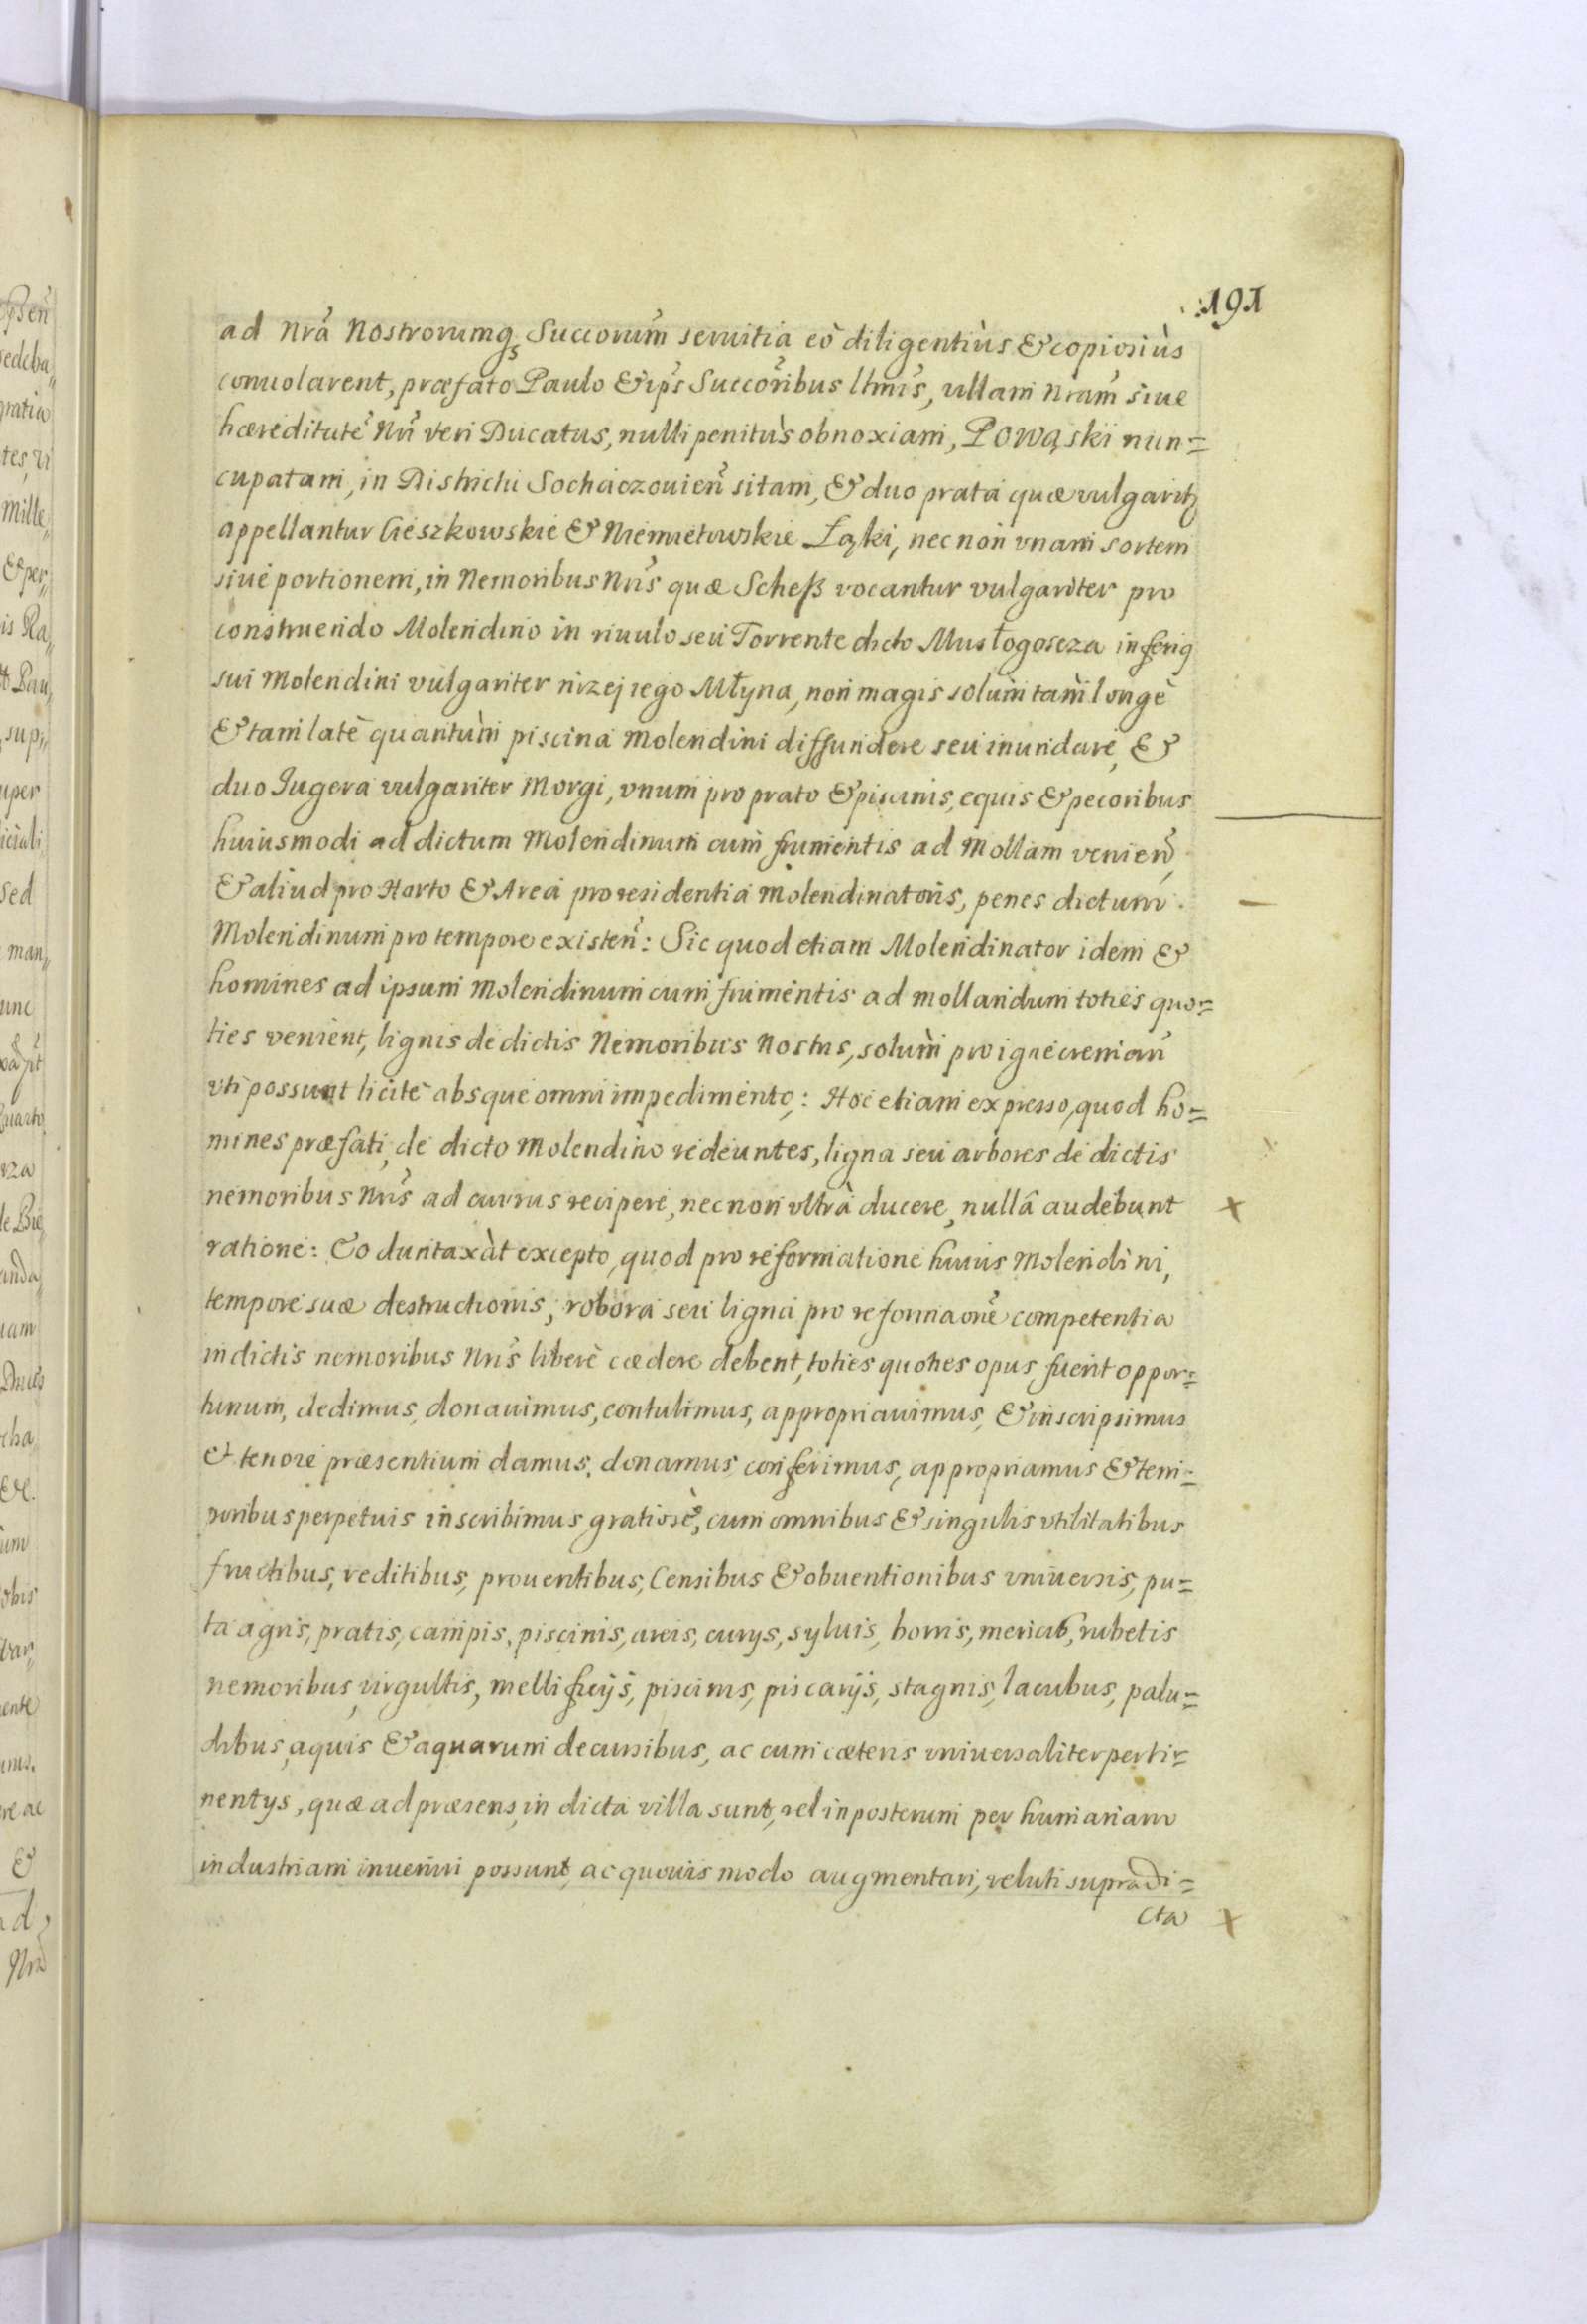 :191
ad nrã Nostrorumq₃ Succorum̃ seruitia eò diligentiùs & copiosiùs
conuolarent, præfato Paulo & ip̃s Succor̃ibus ltmis̃, villam nram̃ siue
hæreditatẽ Nr̃i veri Ducatus, nulli penitùs obnoxiam, Powąski nun=
cupatam, in Districtu Sochaczouien̄ sitam, & duo prata quæ vulgarit
appellantur Cieszkowskie & Niemietowskie Łąki, nec non vnam sortem
siue portionem, in Nemoribus Nris̃ quæ Scheß vocantur vulgariter pro
construendo Molendino in riuulo seu Torrente dicto Mustogoscza inferiq
sui Molendini vulgariter nizej iego Młyna, non magis solùm tàm longè
& tam latè quantùm piscina Molendini diffundere seu inundare, &
duo Jugera vulgariter Morgi, vnum pro prato & piscinis, equis & pecoribus
huiusmodi ad dictum Molendinum cum frumentis ad Mollam venien̄,
& aliud pro Horto & Area pro residentia Molendinatoris, penes dictum
Molendinum pro tempore existen̄: Sic quod etiam Molendinator idem &
homines ad ipsum Molendinum cum frumentis ad mollandum toties quo=
ties venient, lignis de dictis Nemoribus Nostris, solùm pro igne creman̄
vti possunt licitè absque omni impedimento: Hoc etiam expresso, quod ho=
mines præfati, de dicto Molendino redeuntes, ligna seu arbores de dictis
nemoribus Nris̃ ad currus recipere, nec non vltrà ducere, nullâ audebunt
ratione: Eo duntaxàt excepto, quod pro reformatione huius Molendini,
tempore suæ destructionis, robora seu ligna pro reformaõne competentia
in dictis nemoribus Nris̃ liberè cædere debent, toties quoties opus, fuerit oppor=
tunum, dedimus, donauimus, contulimus, appropriauimus, & inscripsimus
et tenore præsentium damus, donamus, conferimus, appropriamus & tem=
poribus perpetuis inscribimus gratiosè, cum omnibus & singulis vtilitatibus
fructibus, reditibus, prouentibus, Censibus & obuentionibus vniuersis, pu=
ta agris, pratis, campis, piscinis, areis, curijs, syluis, borris, mericis, rubetis
nemoribus, virgultis, mellificijs, piscinis, piscarijs, stagnis, lacubus, palu=
dibus, aquis & aquarum decursibus, ac cum cæteris vniuersaliter perti=
nentijs, quæ ad præsens, in dicta villa sunt, vel in posterum per humanam
industriam inueniri possunt, ac quouis modo augmentari, veluti supradi=
cta